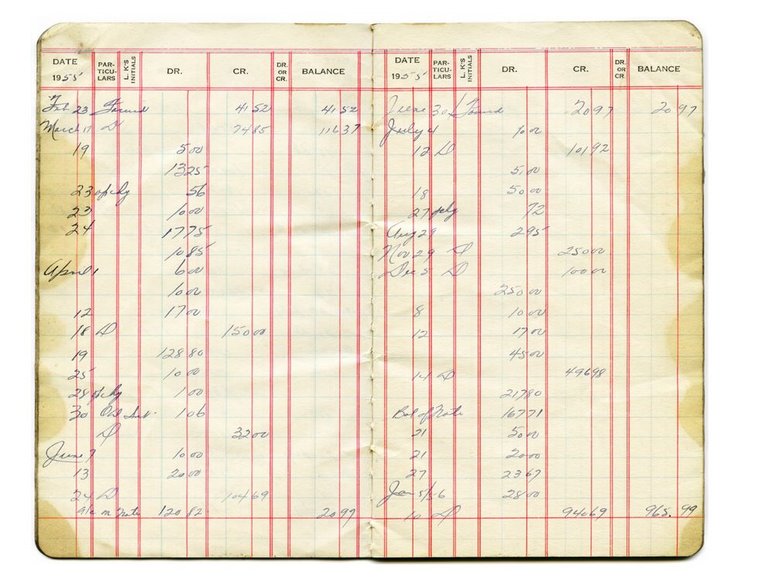 DATE PAR-TICU-LARS L. K'S INITIALS DR. CR. DR. OR CR. BALANCE
1955
Feb 23 Forward 4152 4152
March 17 D 7485 11637
19 500
1325
23 56
23 1000
24 1775
1085
April 1 600
1000
12 1700
18 D 15000
19 12880
25 1000
28 100
30 106
D 3200
June 7 1000
13 2000
24 D 10469
on Note 12082 2097
DATE PAR-TICU-LARS L. K'S INITIALS DR. CR. DR. OR CR. BALANCE
1955
June 30 Forward 2097 2097
July 4 1000
12 D 10192
500
18 5000
27 72
Aug 29 295
Nov 29 D 25000
Dec 5 D 10000
25000
8 1000
12 1700
4500
14 D 49698
21780
Bal of Note 16771
21 5000
21 2000
27 2367
Jan 5/56 2800
10 D 94069 965.99